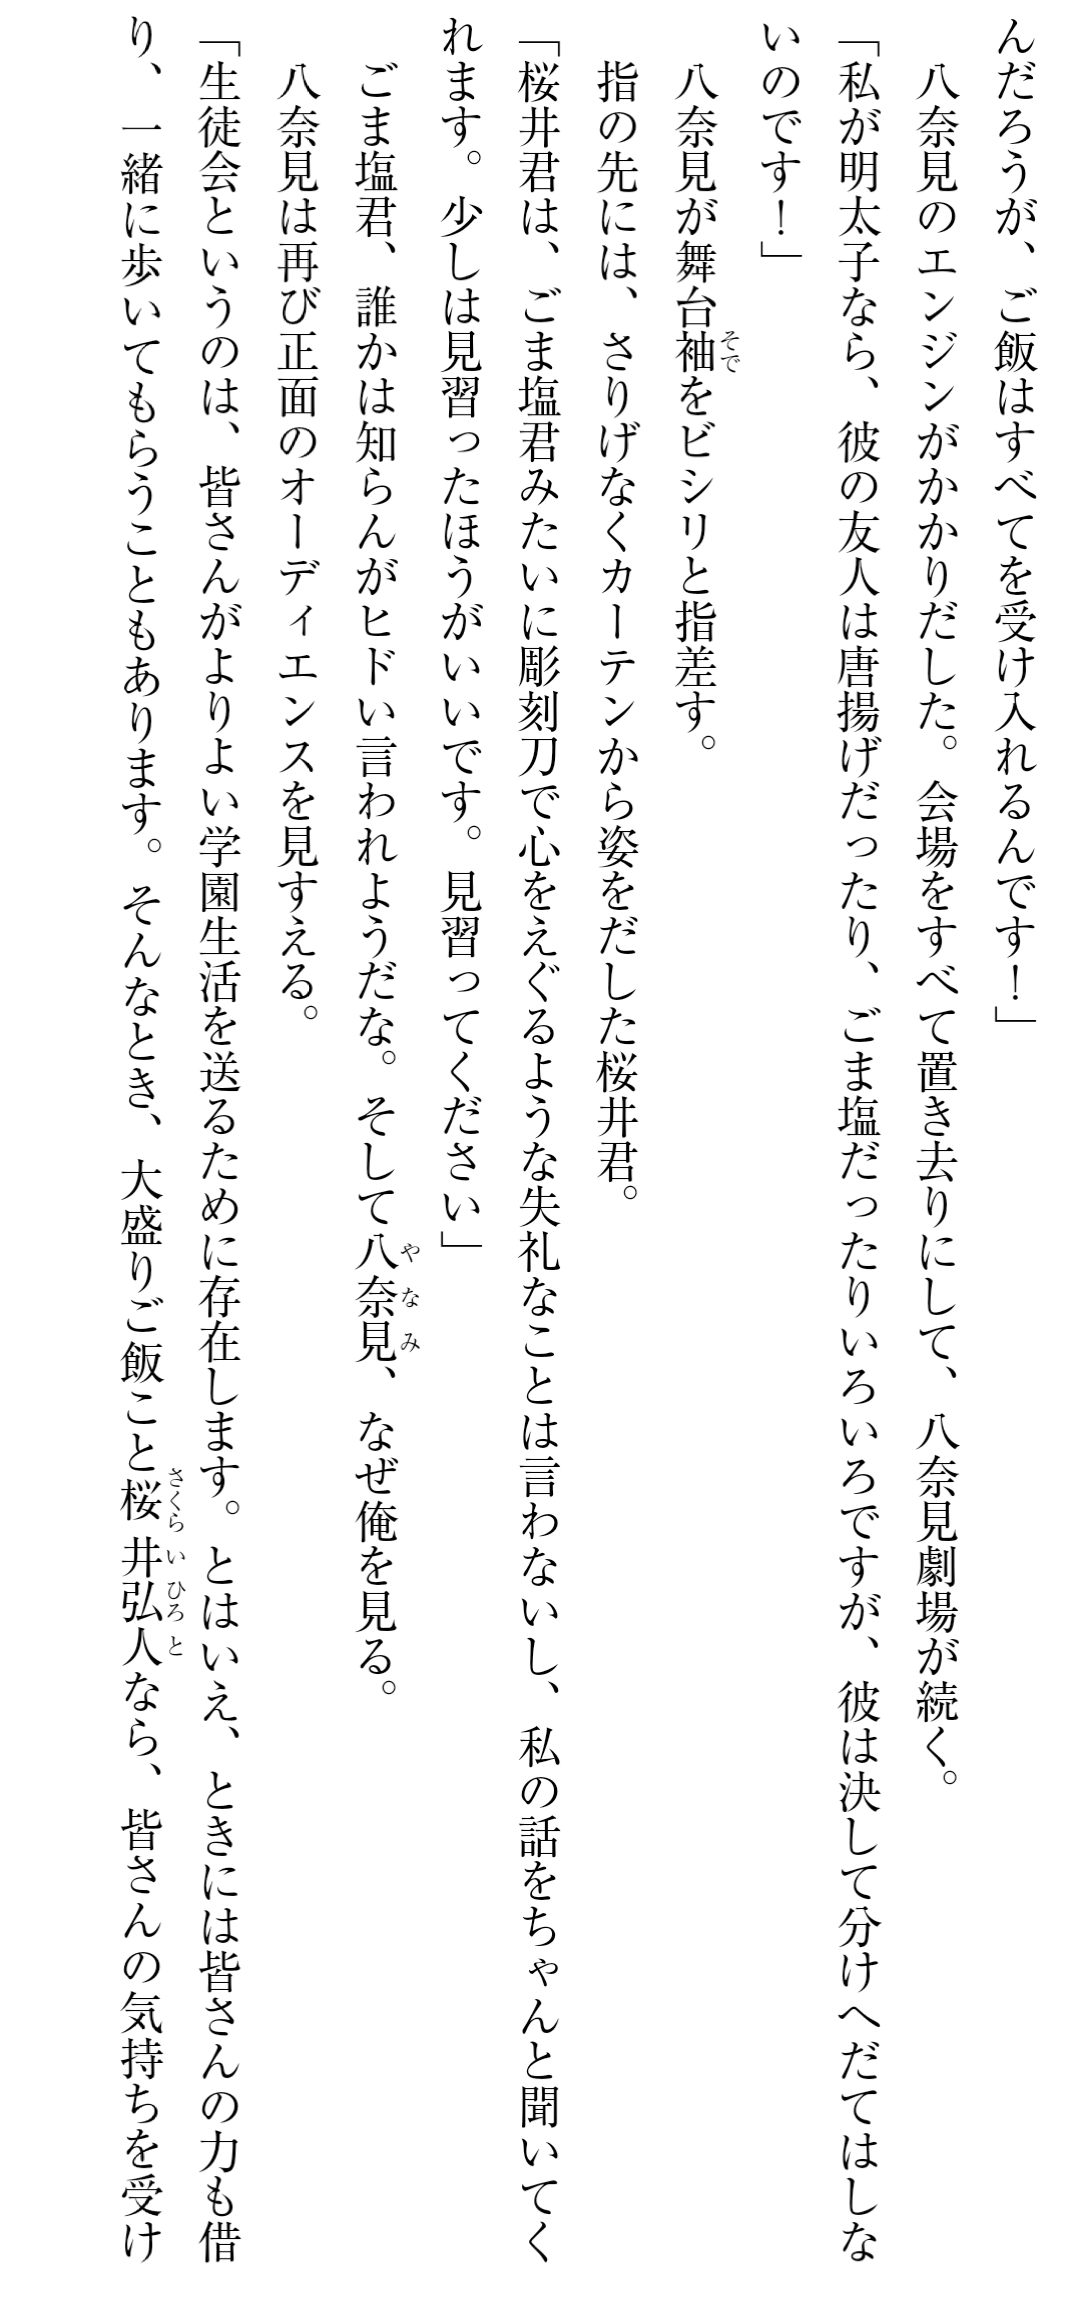 んだろうが、ご飯はすべてを受け入れるんです！」
八奈見のエンジンがかかりだした。会場をすべて置き去りにして、八奈見劇場が続く。
「私が明太子なら、彼の友人は唐揚げだったり、ごま塩だったりいろいろですが、彼は決して分けへだてはしな
いのです！」
八奈見が舞台袖をビシリと指差す。
指の先には、さりげなくカーテンから姿をだした桜井君。
「桜井君は、ごま塩君みたいに彫刻刀で心をえぐるような失礼なことは言わないし、私の話をちゃんと聞いてく
れます。少しは見習ったほうがいいです。見習ってください」
ごま塩君、誰かは知らんがヒドい言われようだな。そして八奈見、なぜ俺を見る。
八奈見は再び正面のオーディエンスを見すえる。
「生徒会というのは、皆さんがよりよい学園生活を送るために存在します。とはいえ、ときには皆さんの力も借
り、一緒に歩いてもらうこともあります。そんなとき、大盛りご飯こと桜井弘人なら、皆さんの気持ちを受け